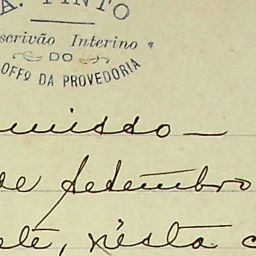 A. PINTO
scrivão Interino
DO
OFFº DA PROVEDORIA
misso—
de setembro
ete, nésta c